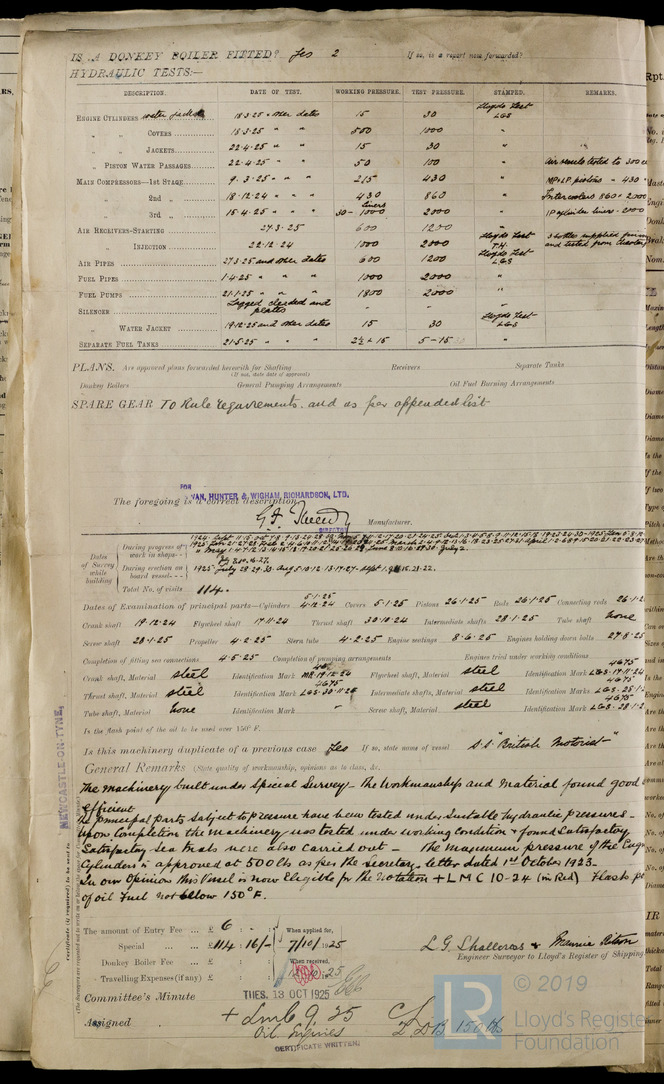 IS A DONKEY BOILER FITTED? Yes 2 If so, is a report now forwarded?
HYDRAULIC TESTS:—
DESCRIPTION. DATE OF TEST. WORKING PRESSURE. TEST PRESSURE. STAMPED. REMARKS.
ENGINE CYLINDERS water jackets 18·3·25 & other dates 15 30 Lloyds Test LGS
" " COVERS 18·3·25 " " 500 1000 "
" " JACKETS 22·4·25 " " 15 30 "
" PISTON WATER PASSAGES 22·4·25 " " 50 100 " Air vessels tested to 300
MAIN COMPRESSORS—1st STAGE 9·3·25 " " 215 430 " MP & LP pistons " 430
" 2nd " 18·12·24 " " 430 860 " Intercoolers 860 & 2000
" 3rd " 15·4·25 " " 30 - 1000 liners 2000 " IP cylinder liners - 2000
AIR RECEIVERS—STARTING 27·3·25 600 1200 "
" INJECTION 22·12·24 1000 2000 Lloyds Test T.H. 3 bottles supplied and tested from
AIR PIPES 27·3·25 and other dates 600 1200 Lloyds Test LGS
FUEL PIPES 1·4·25 " " 1000 2000 "
FUEL PUMPS 21·1·25 " " 1800 2000 "
SILENCER Lagged cleaded and plates - - -
" WATER JACKET 19·12·25 and other dates 15 30 Lloyds Test LGS
SEPARATE FUEL TANKS 21·5·25 " " 2½ & 15 5 - 15 "
PLANS. Are approved plans forwarded herewith for Shafting Receivers Separate Tanks
(If not, state date of approval)
Donkey Boilers General Pumping Arrangements Oil Fuel Burning Arrangements
SPARE GEAR To Rule requirements. and as per appended list
FOR
VAN, HUNTER & WIGHAM RICHARDSON, LTD.
The foregoing is a correct description,
Manufacturer.
DIRECTOR
Dates of Survey while building
During progress of work in shops - -
During erection on board vessel - - - 1925 July 28·29·30 Aug 5·10·12·13·17·27· Sept 1·9·15·23·22.
Total No. of visits 114.
Dates of Examination of principal parts—Cylinders 5·1·25 4·12·24 Covers 5·1·25 Pistons 26·1·25 Rods 26·1·25 Connecting rods 26·1·2
Crank shaft 19·12·24 Flywheel shaft 17·11·24 Thrust shaft 30·10·24 Intermediate shafts 28·1·25 Tube shaft none
Screw shaft 28·1·25 Propeller 4·2·25 Stern tube 4·2·25 Engine seatings 8·6·25 Engines holding down bolts 27·8·25
Completion of fitting sea connections 4·5·25 Completion of pumping arrangements Engines tried under working conditions
Crank shaft, Material steel Identification Mark MR·19·12·24 Flywheel shaft, Material steel Identification Mark 4675 LGS·17·11·24
Thrust shaft, Material steel Identification Mark 4675 LGS·30·11·25 Intermediate shafts, Material steel Identification Marks 4675 LGS·25·1·2
Tube shaft, Material none Identification Mark " Screw shaft, Material steel Identification Mark 4675 LGS·28·1·2
Is the flash point of the oil to be used over 150° F.
Is this machinery duplicate of a previous case Yes If so, state name of vessel S.S. "British Motorist"
General Remarks (State quality of workmanship, opinions as to class, &c.
The machinery built under Special Survey - The Workmanship and material found good &
Efficient
The Principal parts Subject to pressure have been tested under Suitable hydraulic pressures -
Upon Completion the machinery was tested under working condition & found Satisfactory
Satisfactory Sea trials were also carried out - The maximum pressure of the Eng
Cylinders is approved at 500 lbs as per the Secretary's letter dated 1st October 1923.
In our Opinion this Vessel is now Eligible for the Notation + LMC 10-24 (in Red) Flash pt
of oil Fuel not below 150°F.
NEWCASTLE-ON-TYNE
The amount of Entry Fee ... £ 6 : - : When applied for,
Special ... ... £ 114 : 16/- : 7/10/1925
Donkey Boiler Fee ... £ : : When received,
Travelling Expenses (if any) £ : :
L. G. Shallcross &
Engineer Surveyor to Lloyd's Register of Shipping
Committee's Minute TUES. 13 OCT 1925
Assigned + LMC 9.25
Oil Engines
2 DB 150 lb
CERTIFICATE WRITTEN.
LR
© 2019
Lloyd's Register
Foundation